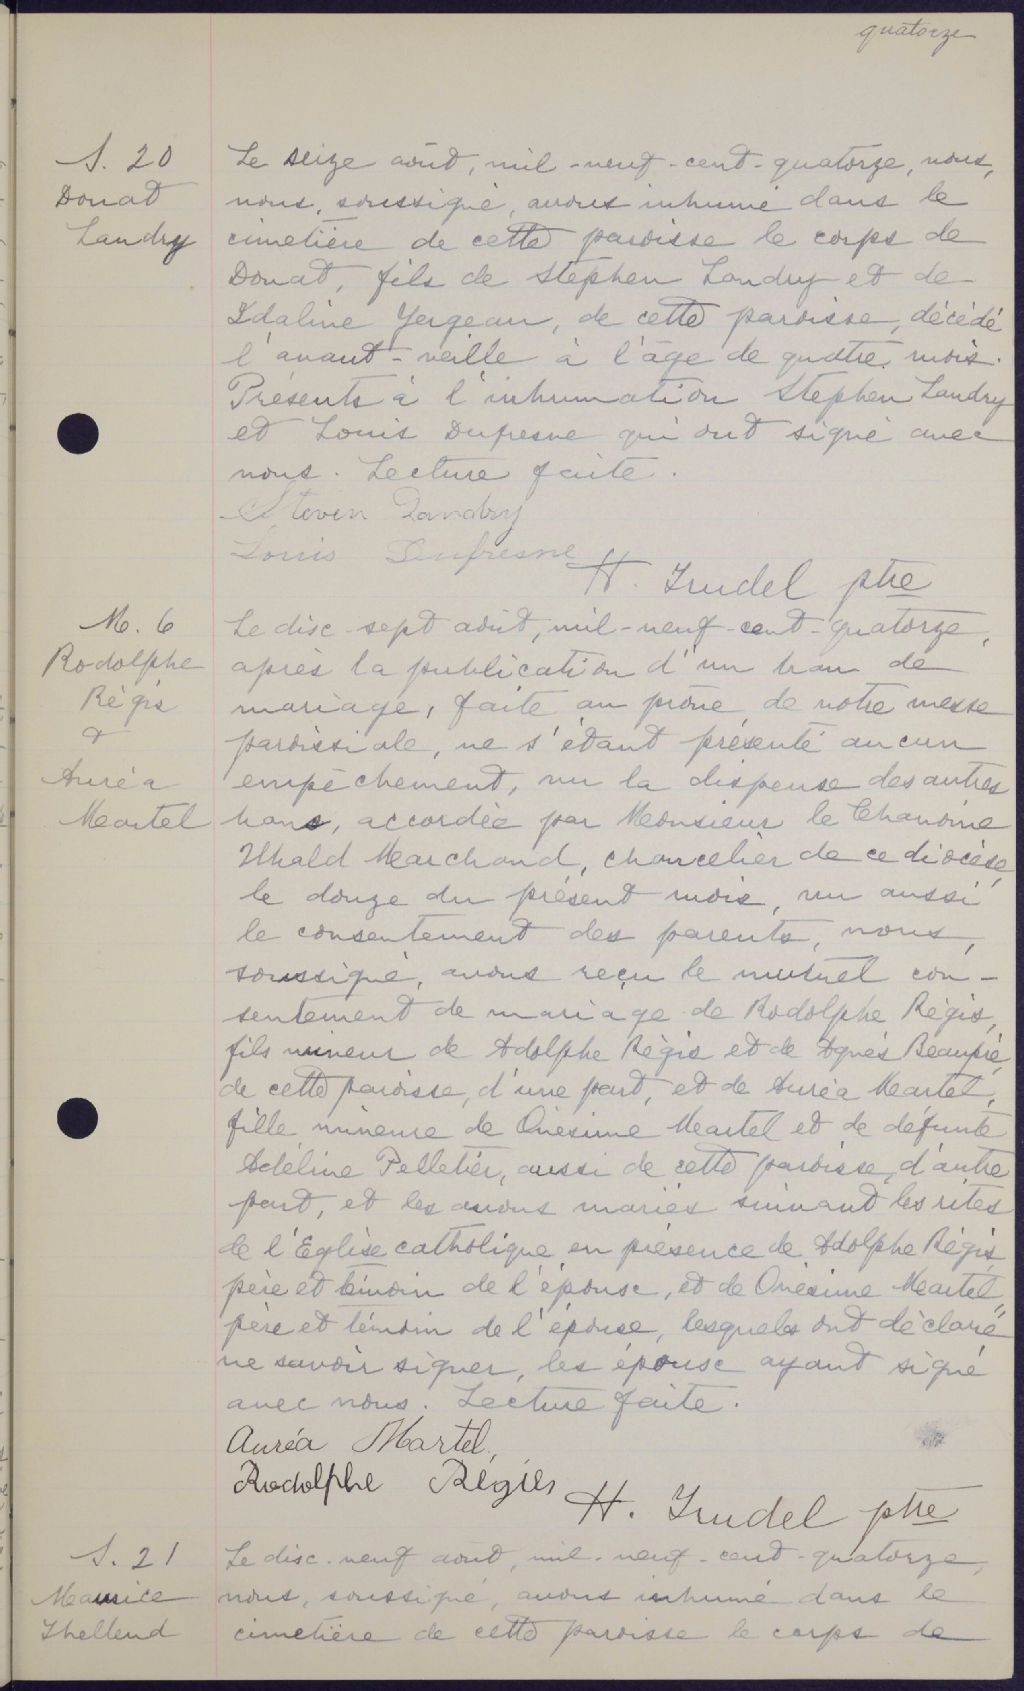 quatorze
S. 20
Donat
Landry
Le seize août, mil-neuf-cent-quatorze, nous,
nous, soussigné, avons inhumé dans le
cimetière de cette paroisse le corps de
Donat, fils de Stephen Landry et de
Idaline Yergeau, de cette paroisse, décédé
l'avant-veille à l'âge de quatre mois.
Présents à l'inhumation Stephen Landry
et Louis Dufresne qui ont signé avec
nous. Lecture faite.
Steven Landry
Louis Dufresne
H. Trudel ptre
M. 6
Rodolphe
Régis
&
Auréa
Martel
Le disc-sept août, mil-neuf-cent-quatorze,
après la publication d'un ban de
mariage, faite au prône de notre messe
paroissiale, ne s'étant présenté aucun
empêchement, vu la dispense des autres
bans, accordée par Monsieur le Chanoine
Ubald Marchand, chancelier de ce diocèse,
le douze du présent mois, vu aussi
le consentement des parents, nous,
soussigné, avons reçu le mutuel con-
sentement de mariage de Rodolphe Régis,
fils mineur de Adolphe Régis et de Agnès Beaupré,
de cette paroisse, d'une part, et de Auréa Martel,
fille mineure de Onésime Martel et de défunte
Adéline Pelletier, aussi de cette paroisse, d'autre
part, et les avons mariés suivant les rites
de l'Eglise catholique en présence de Adolphe Régis,
père et témoin de l'épouse, et de Onésime Martel,
père et témoin de l'épouse, lesquels ont déclaré
ne savoir signer, les épouse ayant signé
avec nous. Lecture faite.
Auréa Martel,
Rodolphe Régies
H. Trudel ptre
S. 21
Maurice
Thellend
Le disc-neuf août, mil-neuf-cent-quatorze,
nous, soussigné, avons inhumé dans le
cimetière de cette paroisse le corps de